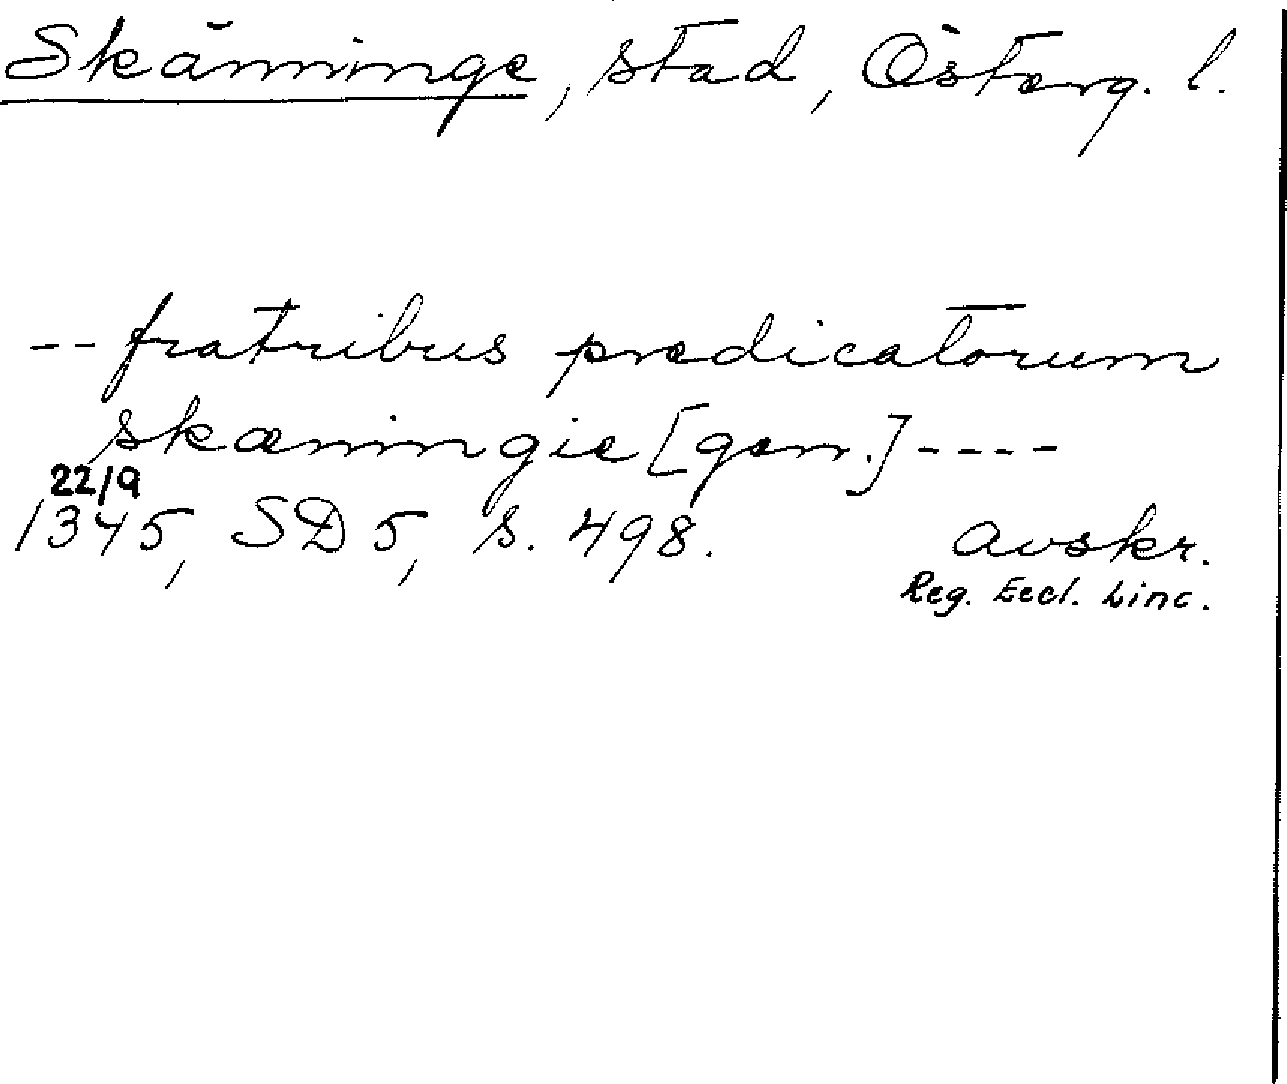 Skänninge, stad, Österg. l.
-- fratribus predicatorum
skæningie [gen.] ----
22/9
1345, SD 5, s. 498. avskr.
Reg. Eccl. Linc.